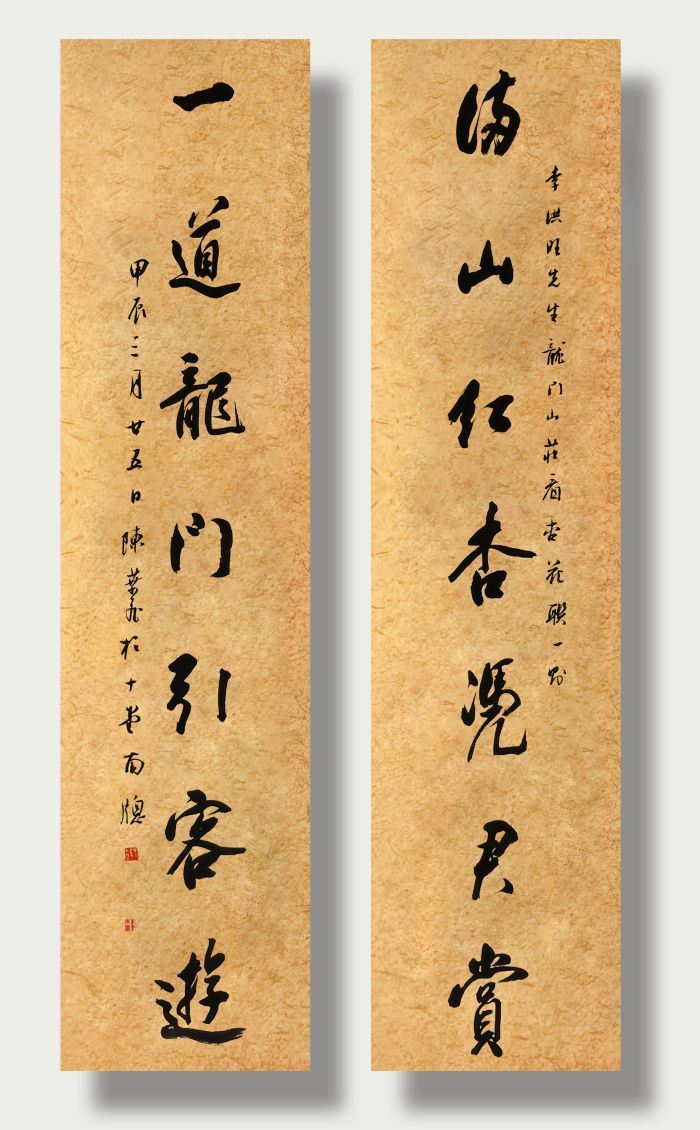 满山红杏凭君赏
李洪旺先生龍门山莊看杏花联一则
一道龍门引客遊
甲辰三月廿五日陳葉飛於十堂南牕